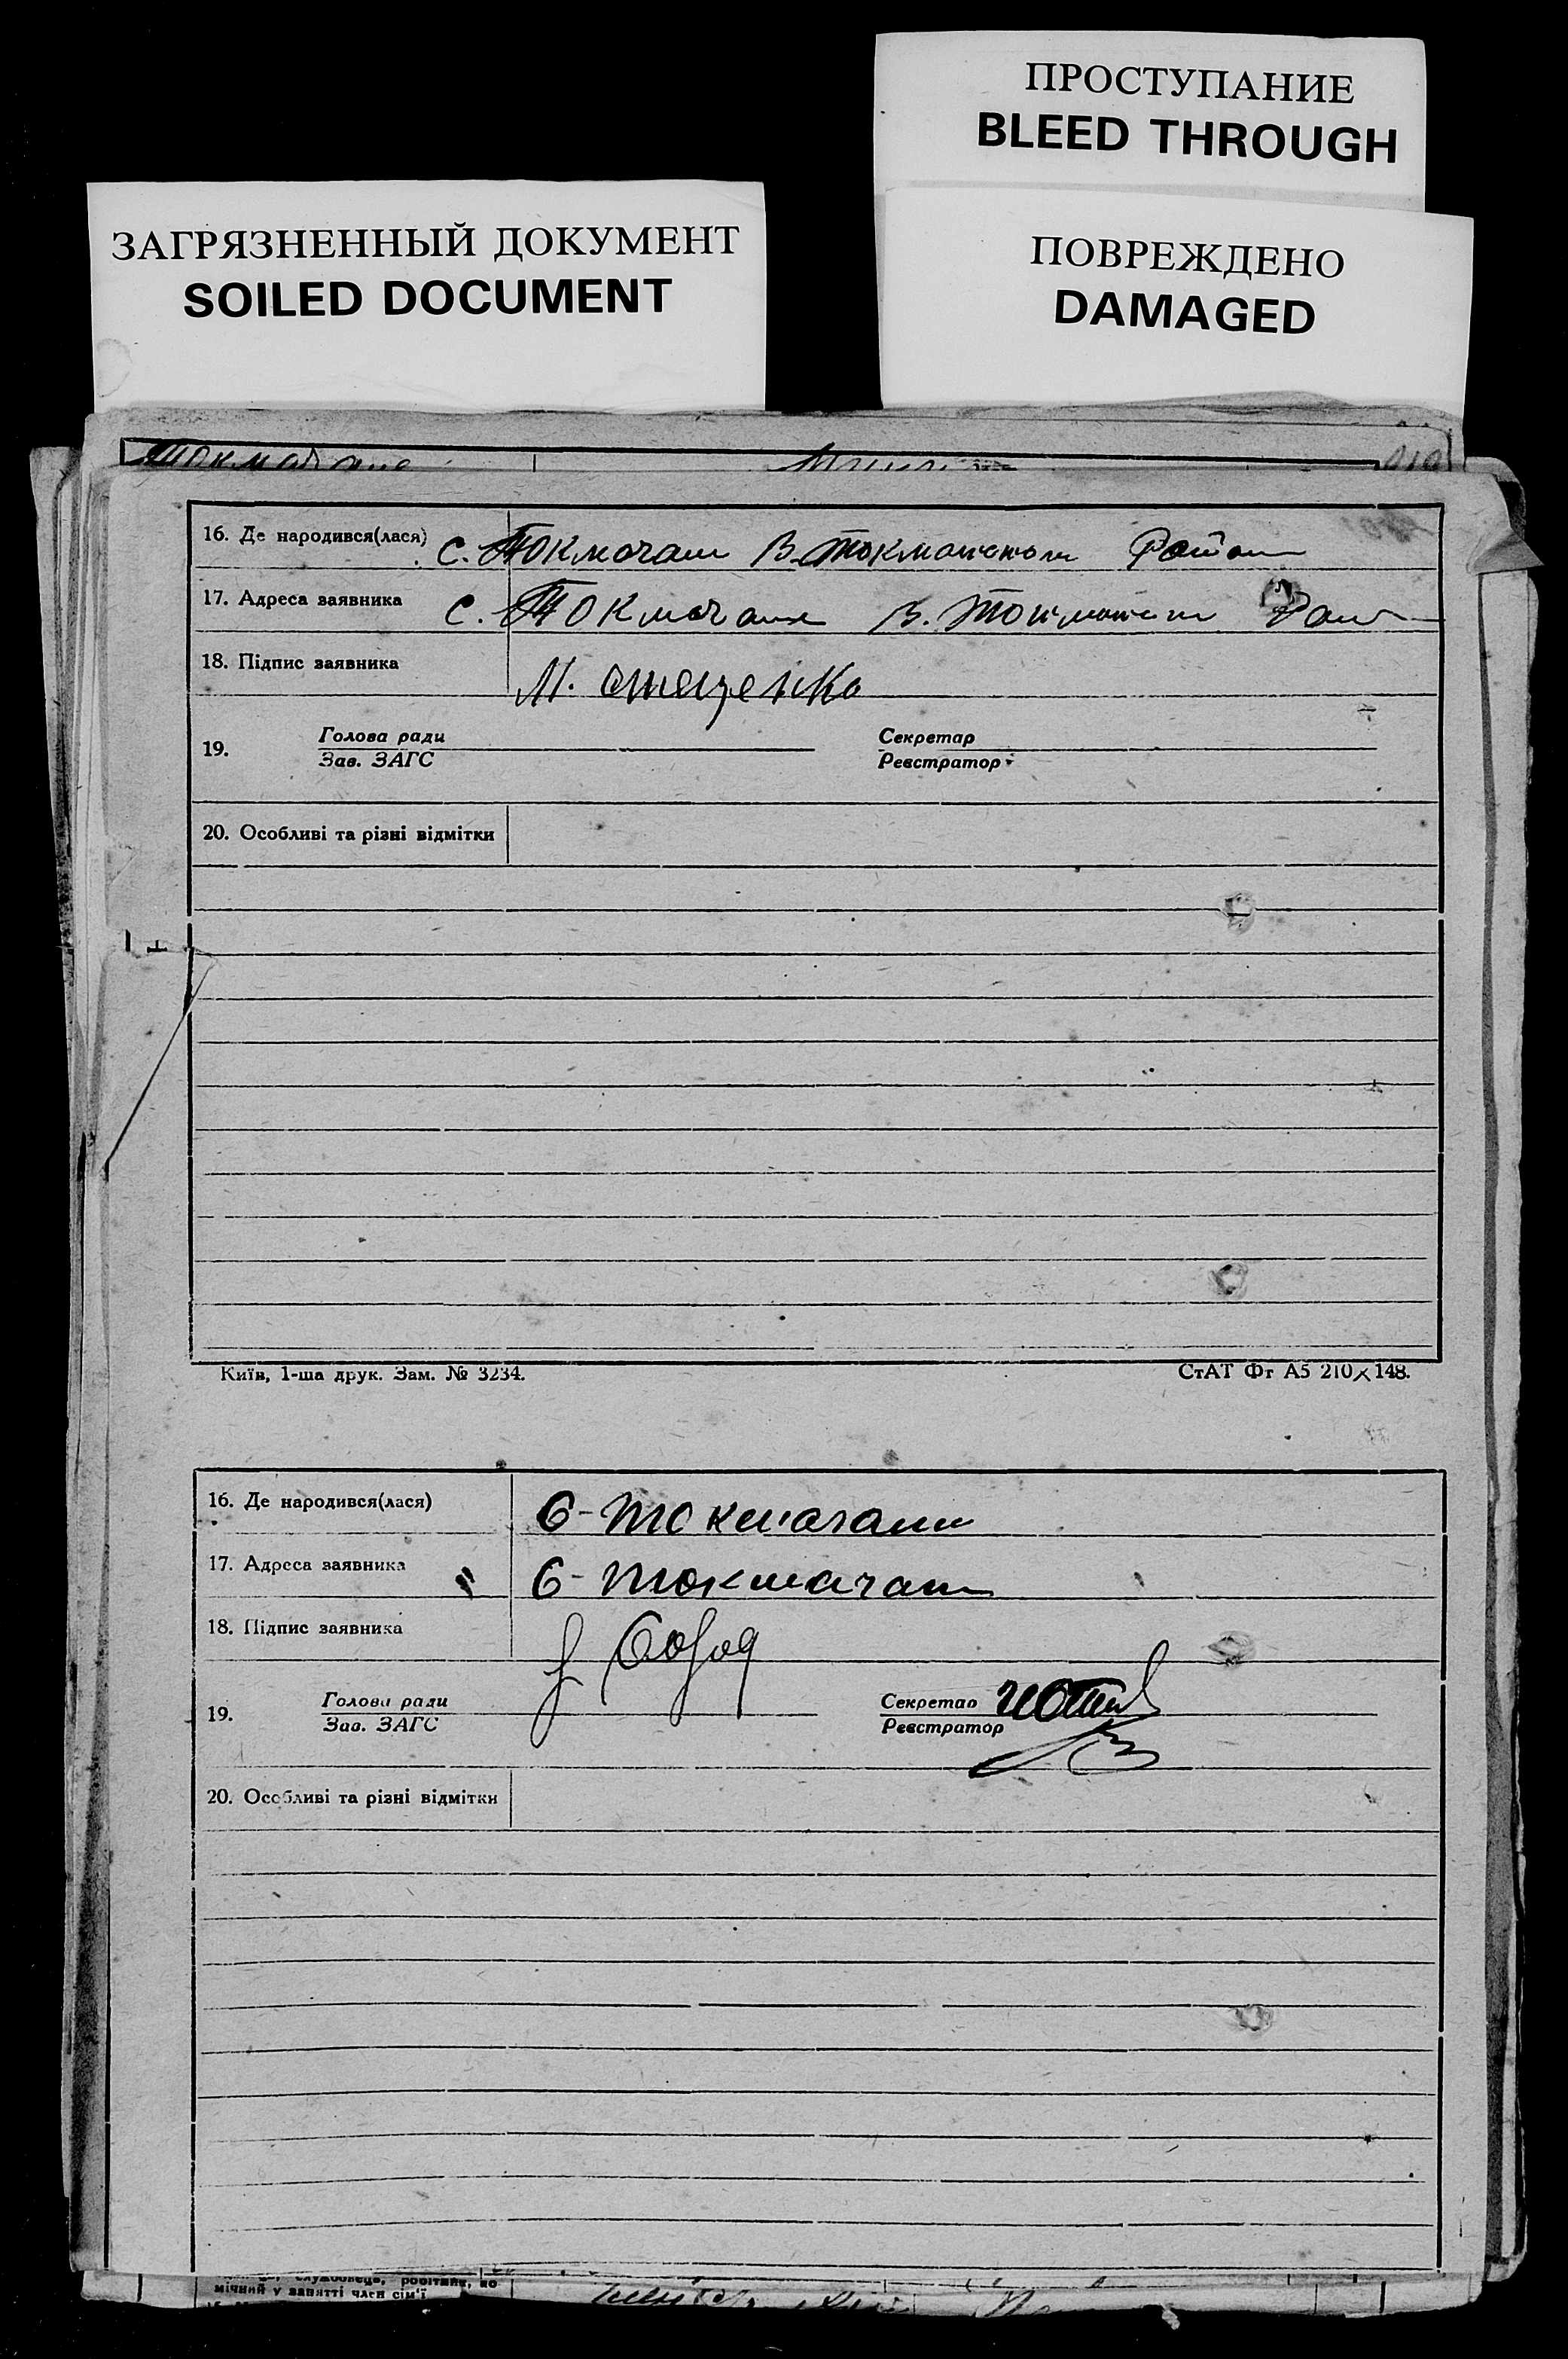 ПРОСТУПАНИЕ
BLEED THROUGH
ЗАГРЯЗНЕННЫЙ ДОКУМЕНТ
SOILED DOCUMENT
ПОВРЕЖДЕНО
DAMAGED
16. Де народився(лася) с. Токмачани В. Токмацького Район
17. Адреса заявника с. Токмачани В. Рай
18. Підпис заявника М. Стеценко
19. Голова ради Секретар
Зав. ЗАГС Реєстратор
20. Особливі та різні відмітки
Київ, 1-ша друк. Зам. № 3234. СтАТ Фт А5 210×148.
16. Де народився(лася) С-Токмачани
17. Адреса заявника С-Токмачани
18. Підпис заявника
19. Голова ради Секретар
Зав. ЗАГС Реєстратор
20. Особливі та різні відмітки
мічний у занятті член сім'ї